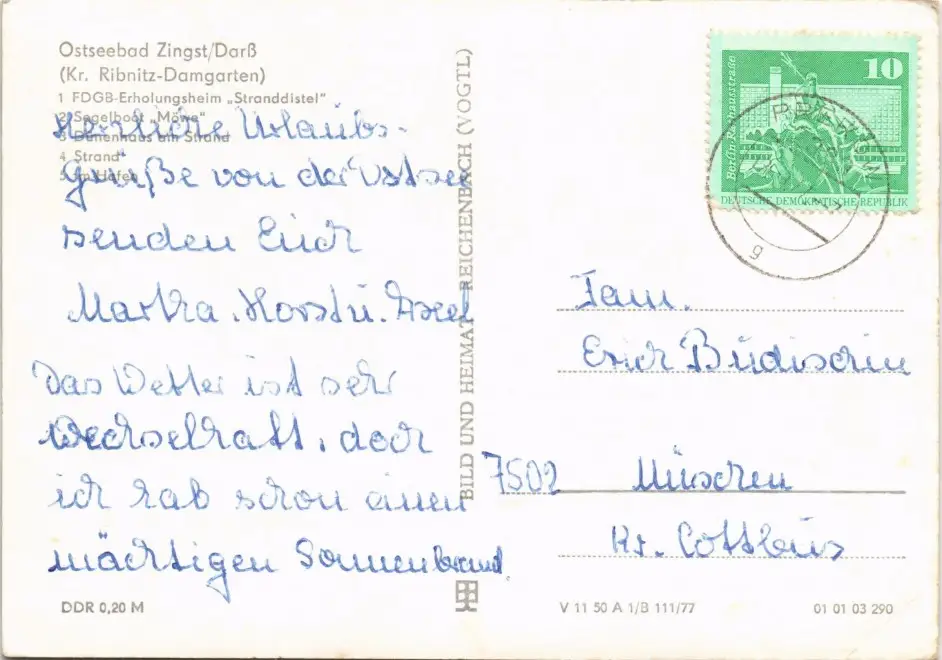 Ostseebad Zingst/Darß
(Kr. Ribnitz-Damgarten)
1 FDGB-Erholungsheim „Stranddistel"
2 Segelboot „Möwe"
3 Dünenhaus am Strand
4 Strand
5 Am Hafen
Herzliche Urlaubs-
grüße von der Ostsee
senden Euch
Martha, Horst u. Axel
Das Wetter ist sehr
Wechselhaft, doch
ich hab schon einen
mächtigen Sonnenbrand.
DDR 0,20 M
BILD UND HEIMAT REICHENBACH (VOGTL)
10
Berlin-Rathausstraße
DEUTSCHE DEMOKRATISCHE REPUBLIK
PREROW
g
Fam.
Erich Büdischin
7502 Müschen
Kr. Cottbus
V 11 50 A 1/B 111/77
01 01 03 290